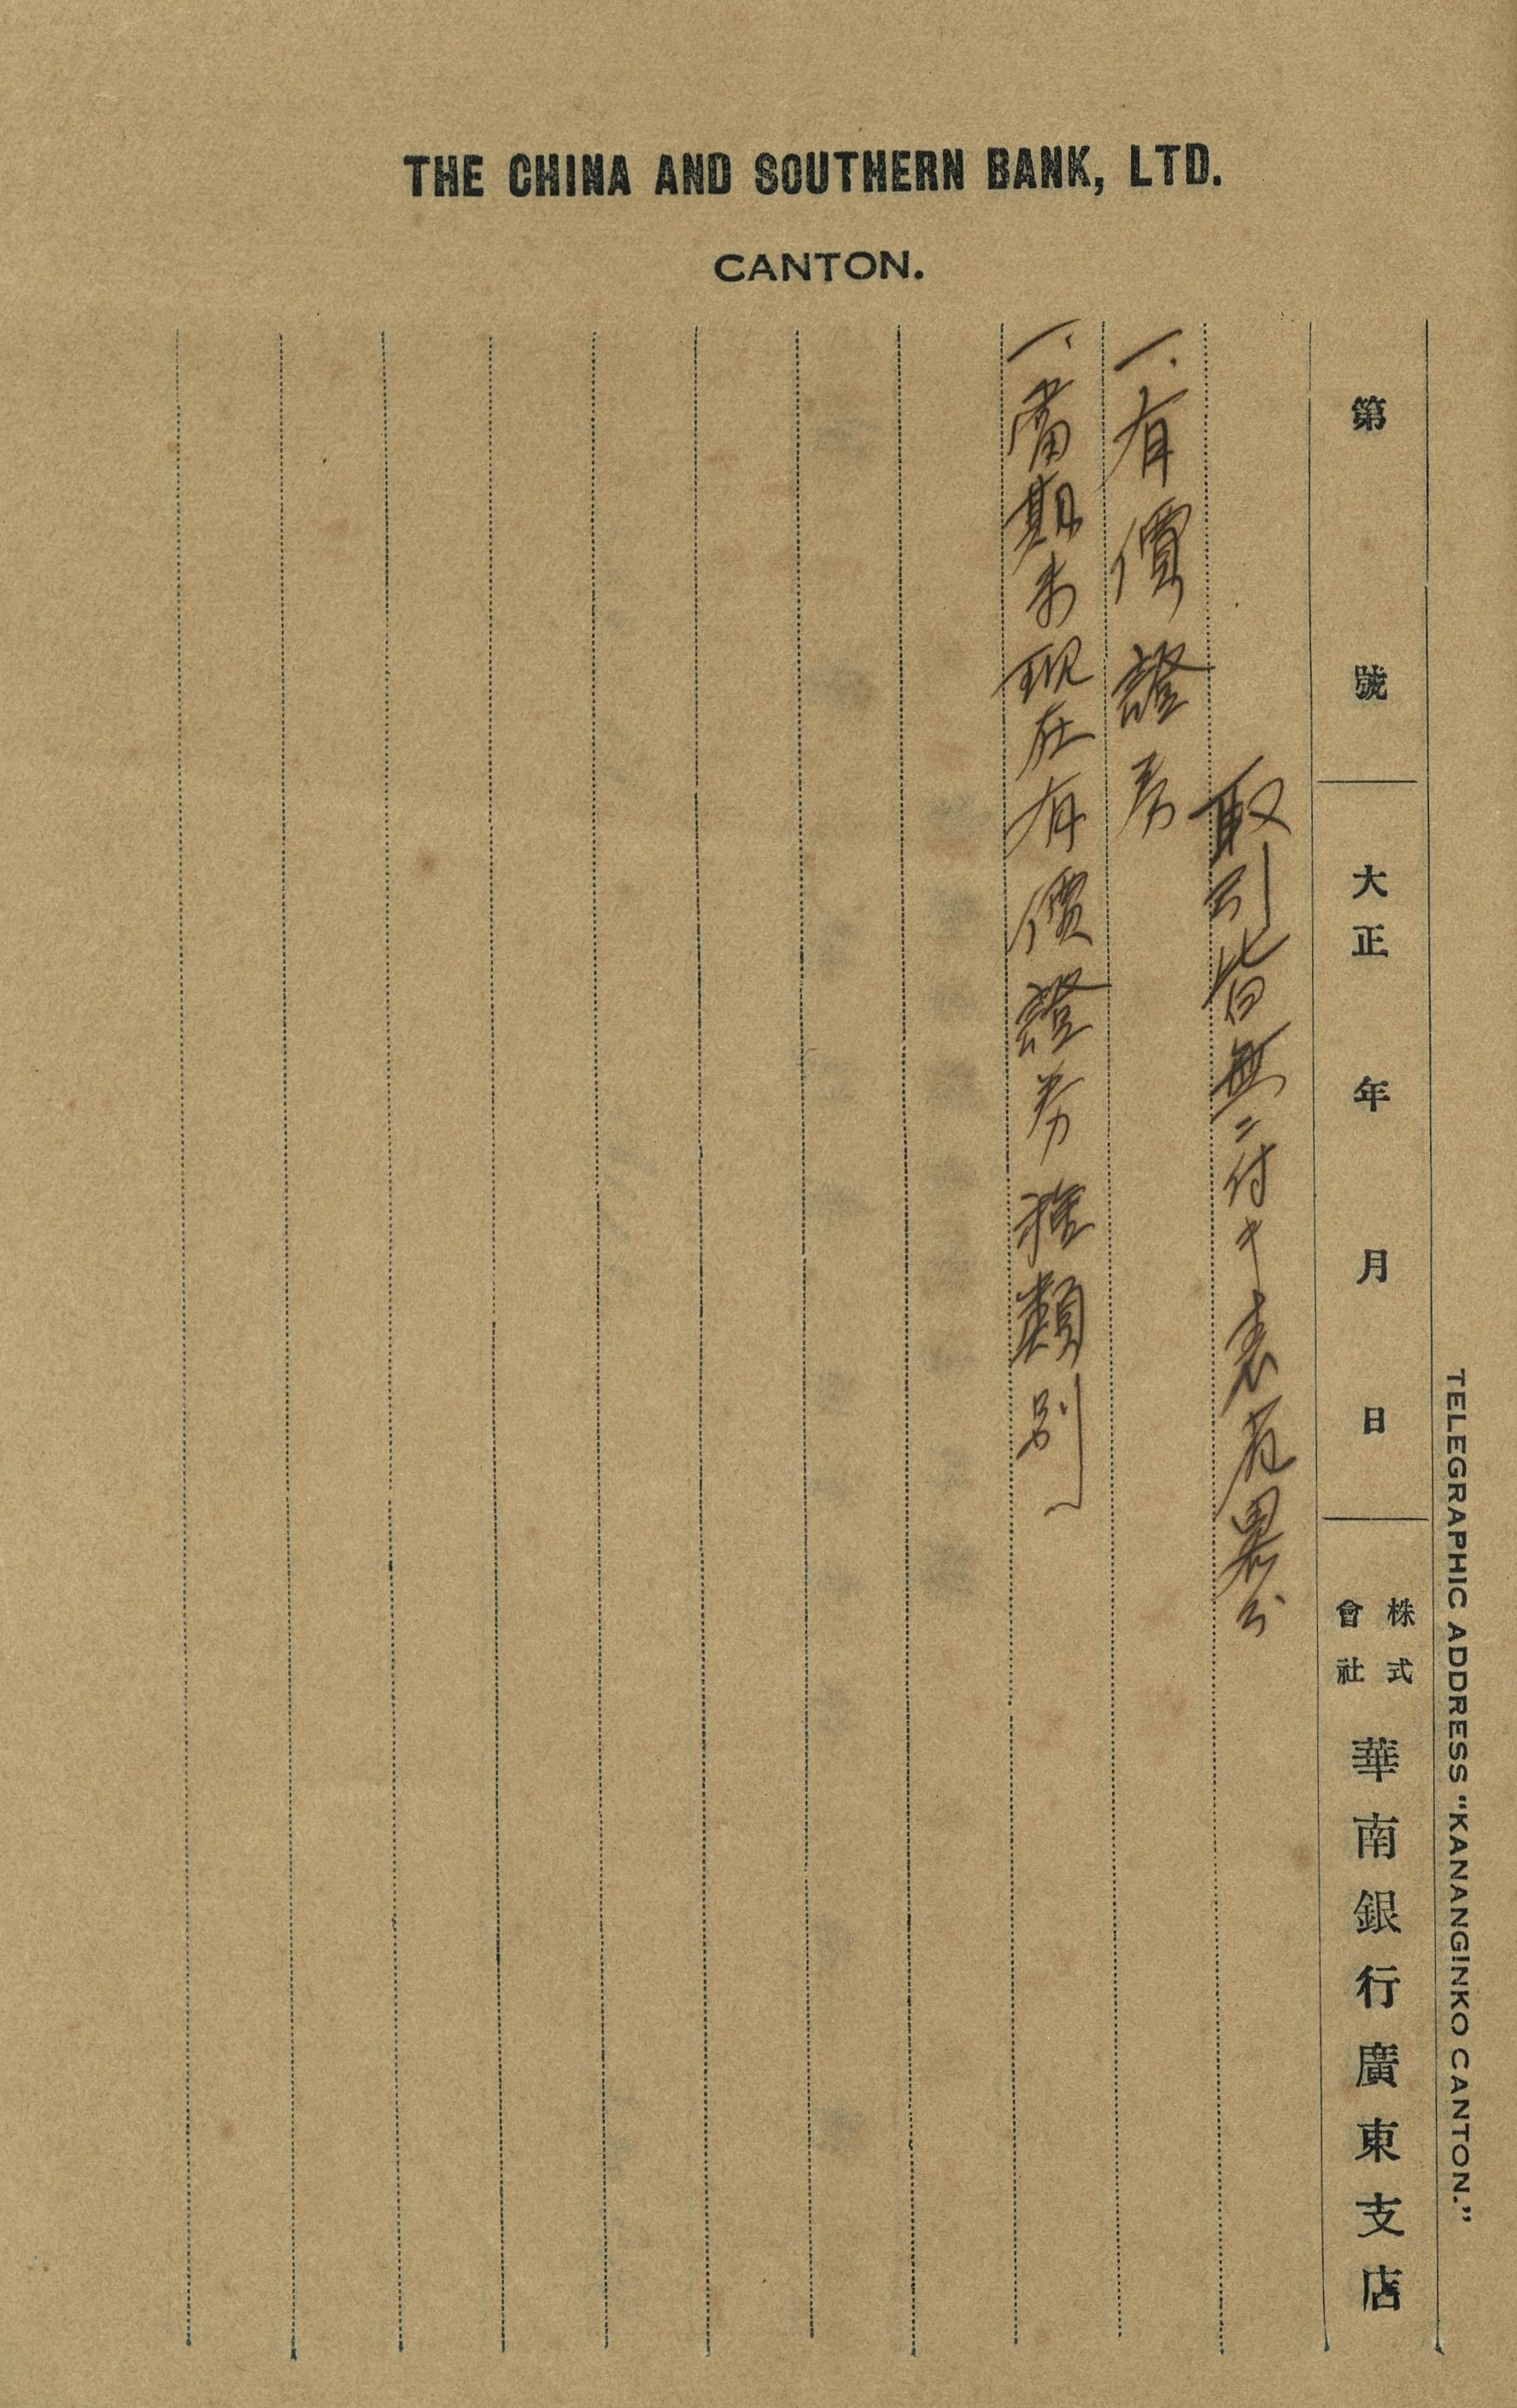 THE CHINA AND SOUTHERN BANK, LTD.
CANTON.
TELEGRAPHIC ADDRESS "KANANGINKO CANTON."
第 號 大正 年 月 日 株式會社 華南銀行廣東支店
取引皆無ニ付キ表畧ス
一、有價證券
一、當期末現在有價證券種類別